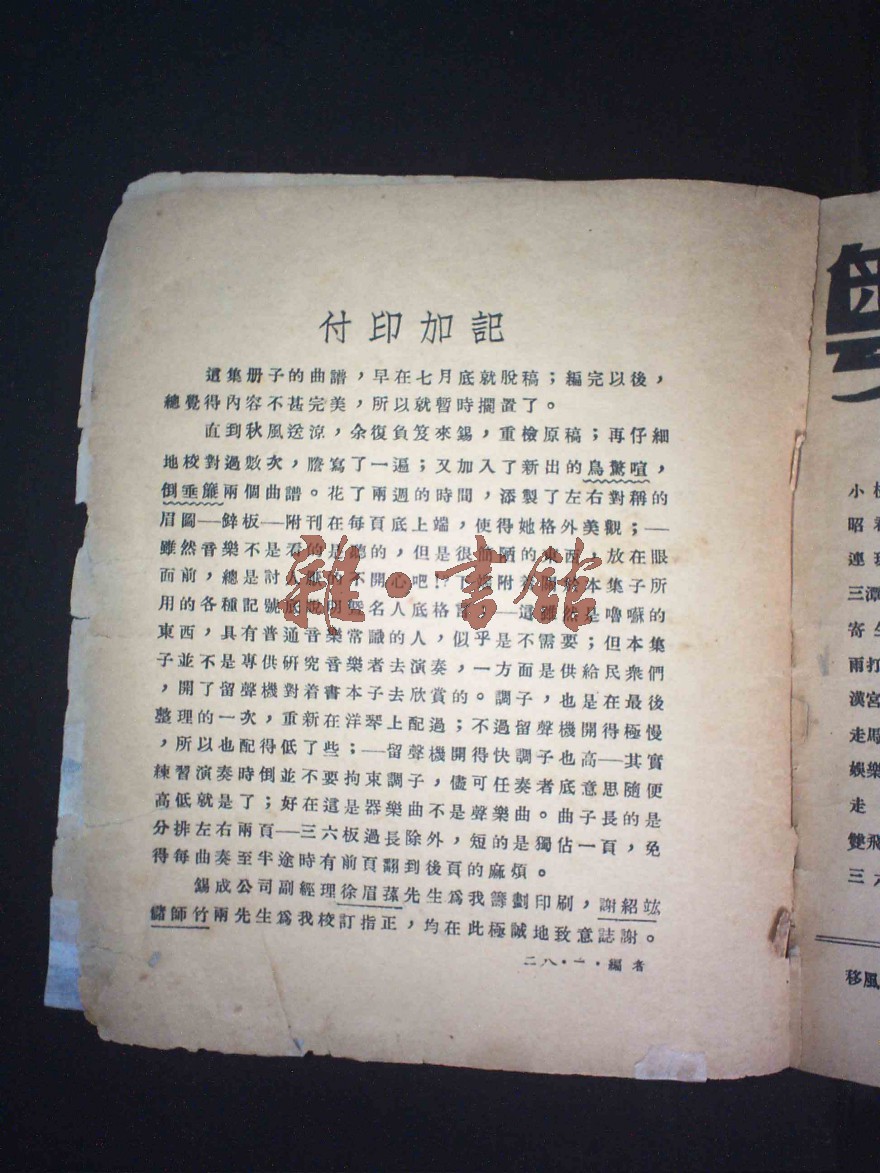 付印加記
這集册子的曲譜，早在七月底就脫稿；編完以後，
總覺得內容不甚完美，所以就暫時擱置了。
直到秋風送涼，余復負笈來錫，重檢原稿；再仔細
地校對過數次，謄寫了一遍；又加入了新出的鳥驚喧，
倒垂簾兩個曲譜。花了兩週的時間，添製了左右對稱的
眉圖—鋅板—附刊在每頁底上端，使得她格外美觀；—
雖然音樂不是看的是聽的，但是很面陋的東西，放在眼
面前，總是討人厭的不開心吧！？下邊附着關於本集子所
用的各種記號底說明暨名人底格言，—這雖然是嚕囌的
東西，具有普通音樂常識的人，似乎是不需要；但本集
子並不是專供研究音樂者去演奏，一方面是供給民衆們
，開了留聲機對着書本子去欣賞的。調子，也是在最後
整理的一次，重新在洋琴上配過；不過留聲機開得極慢
，所以也配得低了些；—留聲機開得快調子也高—其實
練習演奏時倒並不要拘束調子，儘可任奏者底意思隨便
高低就是了；好在這是器樂曲不是聲樂曲。曲子長的是
分排左右兩頁—三六板過長除外，短的是獨佔一頁，免
得每曲奏至半途時有前頁翻到後頁的麻煩。
錫成公司副經理徐眉蓀先生爲我籌劃印刷，謝紹竑
儲師竹兩先生爲我校訂指正，均在此極誠地致意誌謝。
二八·一·編者
雅·書館
粵
小桃
昭君
連環
三潭
寄生
雨打
漢宮
走馬
娛樂
走
雙飛
三六
移風